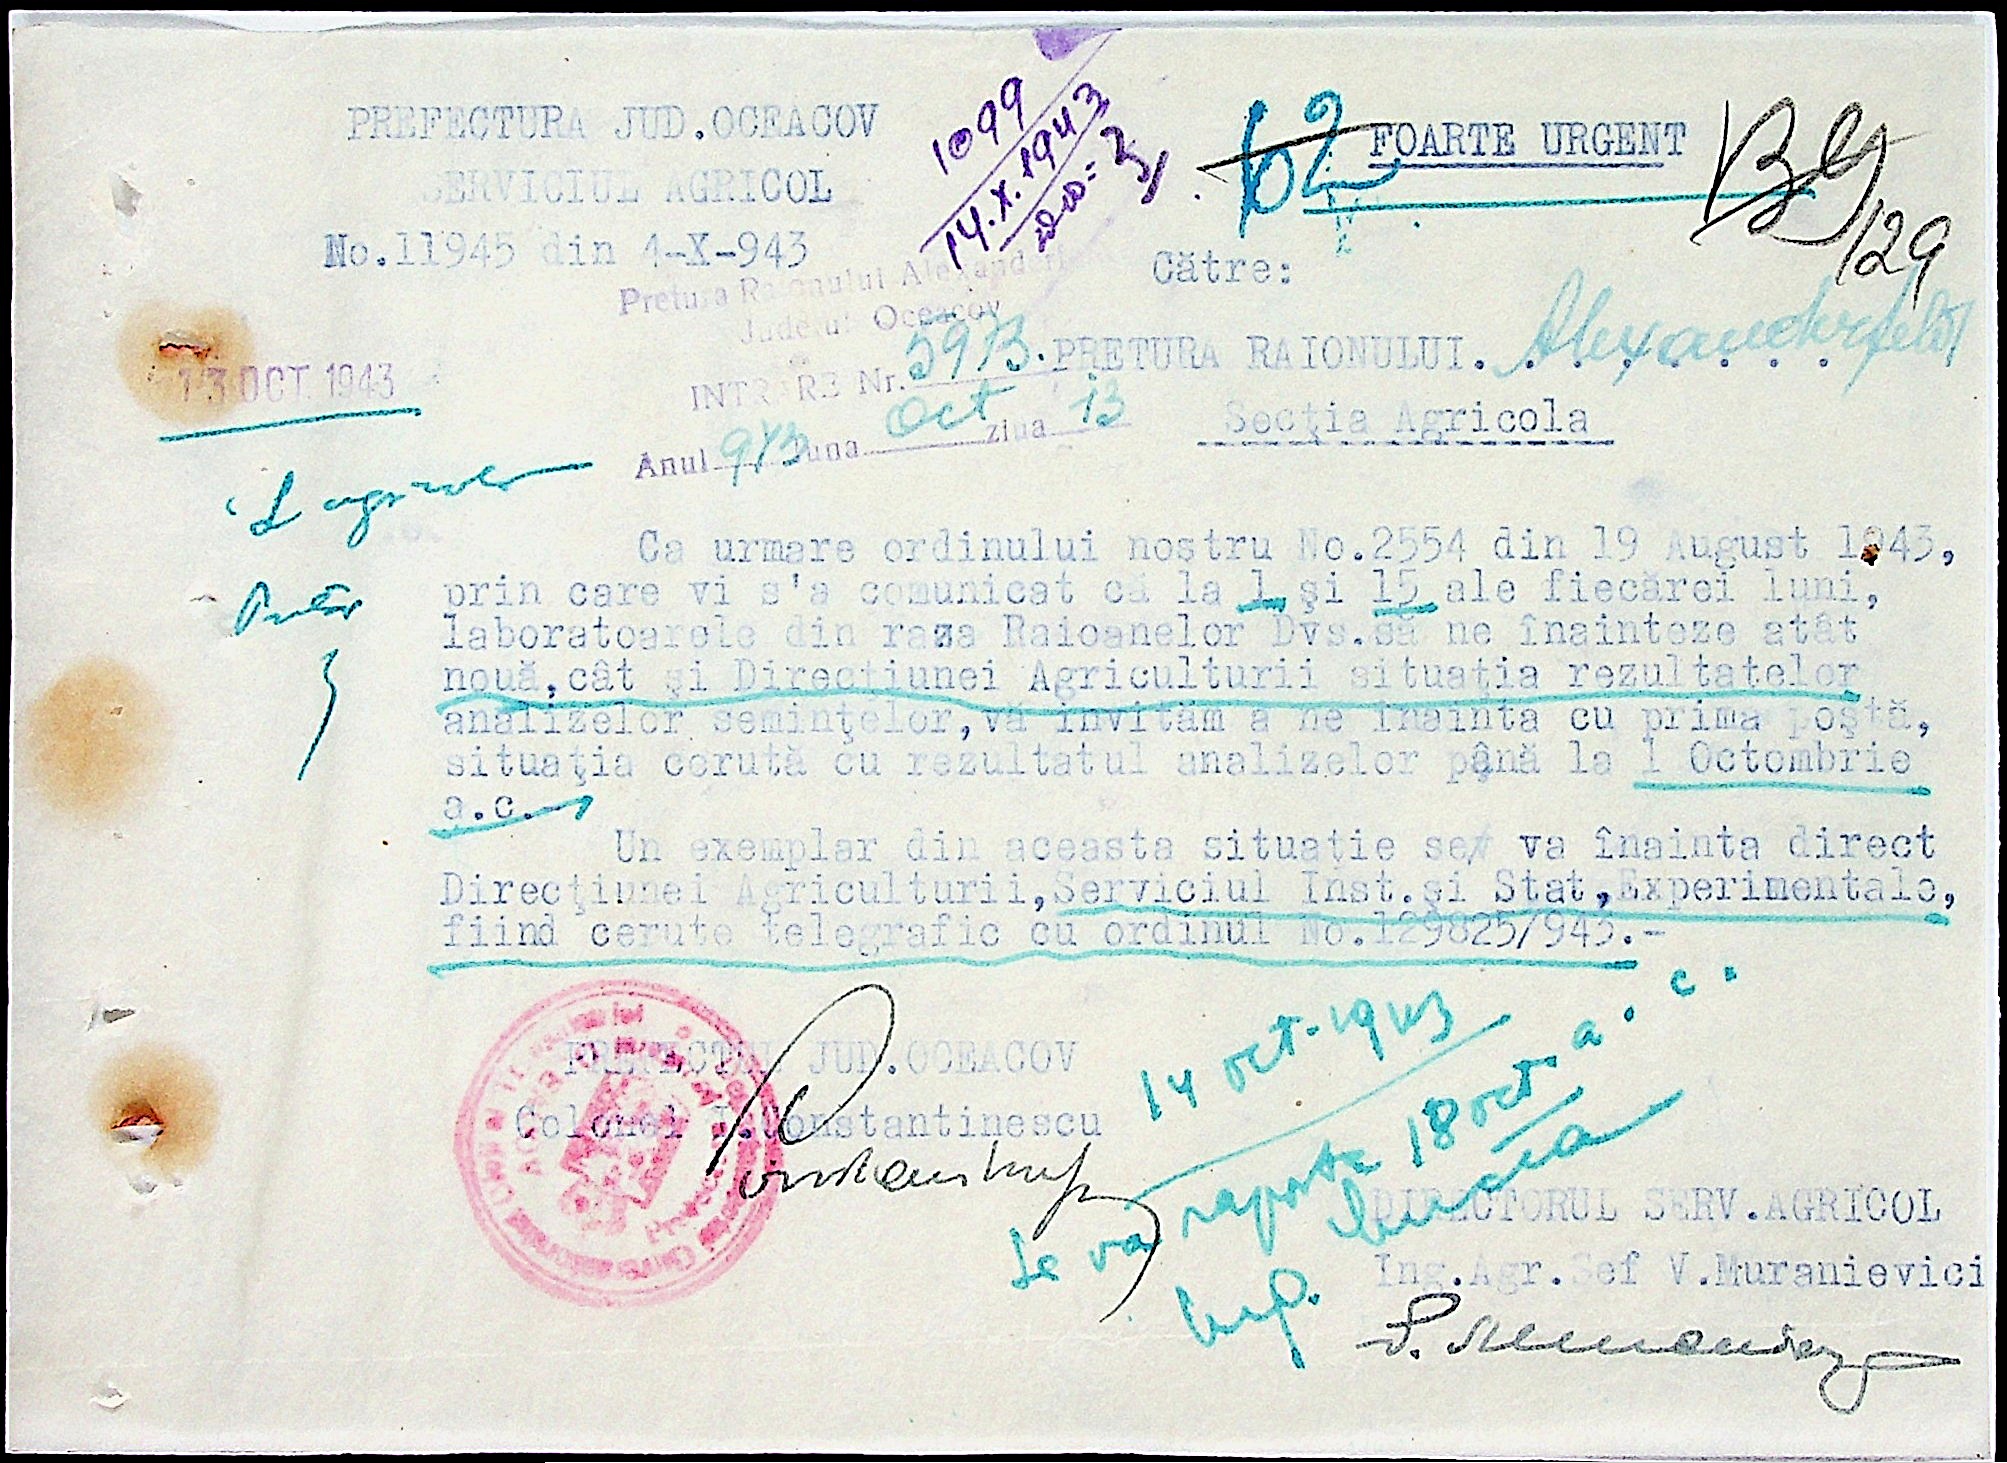 PREFECTURA JUD.OCEACOV
SERVICIUL AGRICOL
No.11945 din 1-X-943
1099
14.X.1943
62
FOARTE URGENT
129
Către:
Pretura Raionului Alexanderf
Județul Oceacov
INTRARE Nr. 5973.
Anul 943 luna Oct ziua 13
PRETURA RAIONULUI. Alexanderfeld
Secţia Agricola
13 OCT 1943
Ca urmare ordinului nostru No.2554 din 19 August 1943,
prin care vi s'a comunicat că la 1 şi 15 ale fiecărei luni,
laboratoarele din raza Raioanelor Dvs.să ne înainteze atât
nouă,cât şi Direcţiunei Agriculturii situaţia rezultatelor
analizelor seminţelor,vă invităm a ne înainta cu prima poştă,
situaţia cerută cu rezultatul analizelor până la 1 Octombrie
a.c.
Un exemplar din aceasta situatie se va înainta direct
Direcţiunei Agriculturii,Serviciul Inst.şi Stat,Experimentale,
fiind cerute telegrafic cu ordinul No.129825/943.-
PREFECTUL JUD.OCEACOV
Colonel I.Constantinescu
14 oct. 1943
Se va raporta 18 oct. a.c.
DIRECTORUL SERV.AGRICOL
Ing.Agr.Sef V.Muranievici